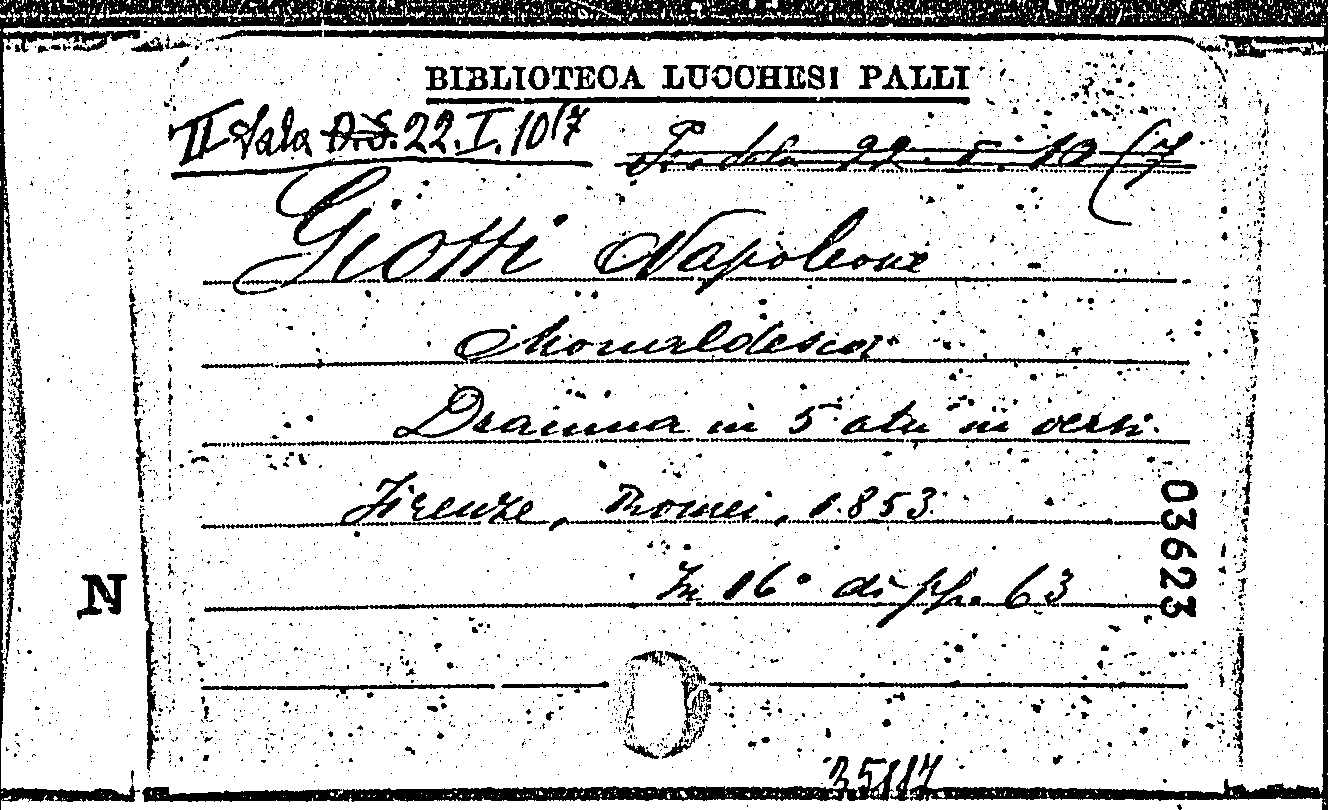 BIBLIOTECA LUCCHESI PALLI
II Sala D.S. 22.I.10(7
22. I. 10 (7
Giotti Napoleone
Monaldesca
Dramma in 5 atti in versi.
Firenze, Romei, 1853
In 16° di pp. 63
03623
N
35117